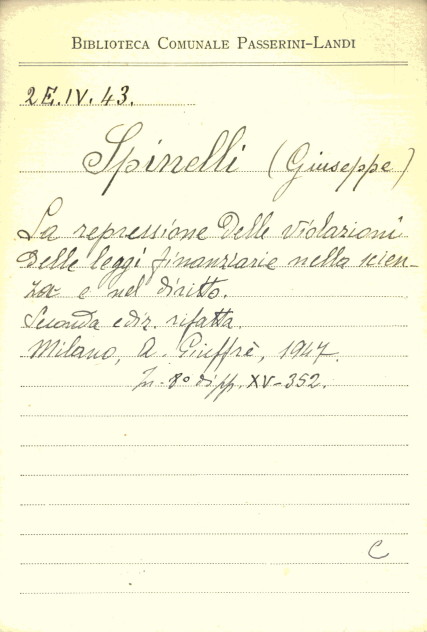 BIBLIOTECA COMUNALE PASSERINI-LANDI
2E.IV.43.
Spinelli (Giuseppe)
La repressione delle violazioni
delle leggi finanziarie nella scien-
za e nel diritto.
Seconda ediz. rifatta.
Milano, A. Giuffrè, 1947.
In-8° di pp. XV-352.
C